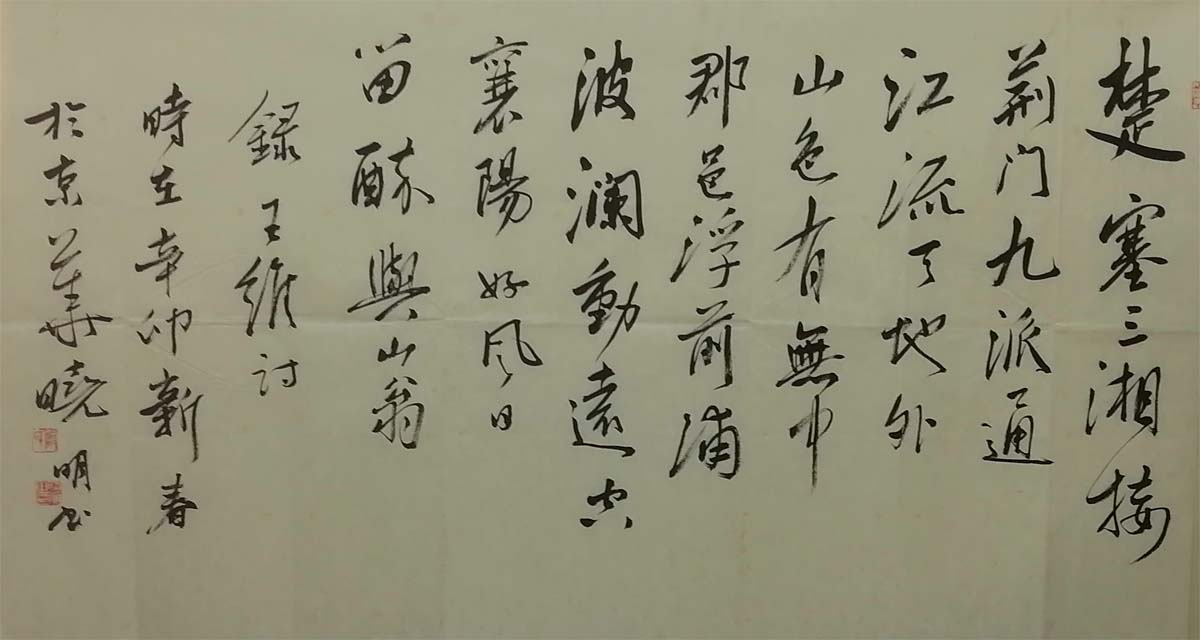 楚塞三湘接
荆门九派通
江流天地外
山色有無中
郡邑浮前浦
波澜動遠空
襄陽好风日
留醉與山翁
録王維诗
時在辛卯新春
於京華曉明书